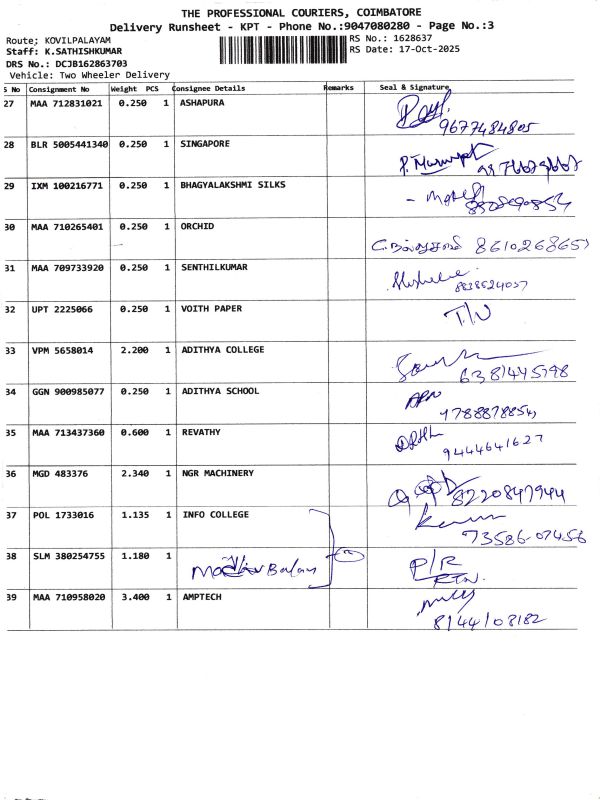 THE PROFESSIONAL COURIERS, COIMBATORE
Delivery Runsheet - KPT - Phone No.:9047080280 - Page No.:3
Route; KOVILPALAYAM
RS No.: 1628637
Staff: K.SATHISHKUMAR
RS Date: 17-Oct-2025
DRS No.: DCJB162863703
Vehicle: Two Wheeler Delivery
S No Consignment No Weight PCS Consignee Details Remarks Seal & Signature
27 MAA 712831021 0.250 1 ASHAPURA
9677484805
28 BLR 5005441340 0.250 1 SINGAPORE
29 IXM 100216771 0.250 1 BHAGYALAKSHMI SILKS
30 MAA 710265401 0.250 1 ORCHID
861026865
31 MAA 709733920 0.250 1 SENTHILKUMAR
32 UPT 2225066 0.250 1 VOITH PAPER
33 VPM 5658014 2.200 1 ADITHYA COLLEGE
6381445798
34 GGN 900985077 0.250 1 ADITHYA SCHOOL
35 MAA 713437360 0.600 1 REVATHY
9444641627
36 MGD 483376 2.340 1 NGR MACHINERY
8220847944
37 POL 1733016 1.135 1 INFO COLLEGE
73586-07456
38 SLM 380254755 1.180 1
P/R
39 MAA 710958020 3.400 1 AMPTECH
8144108182